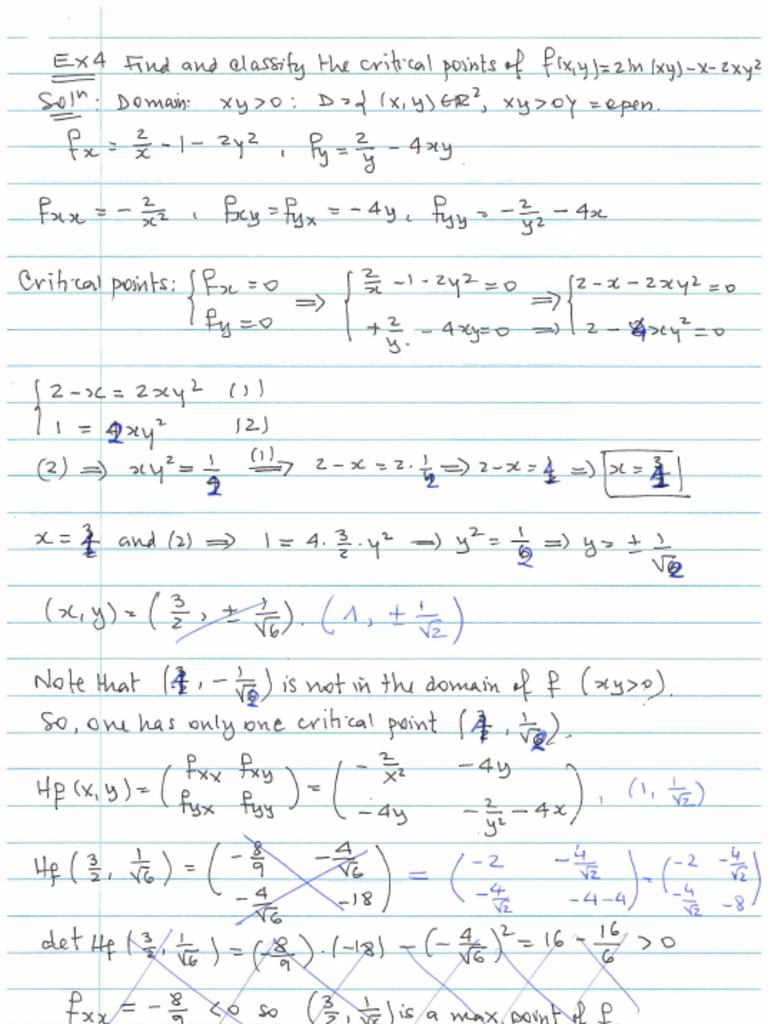 Ex4 Find and classify the critical points of f(x,y)=2ln(xy)-x-2xy²
Solⁿ: Domain: xy>0: D={(x,y)∈ℝ², xy>0} = open.
fx = 2/x - 1 - 2y², fy = 2/y - 4xy
fxx = -2/x², fxy = fyx = -4y, fyy = -2/y² - 4x
Critical points: { fx = 0 ⇒ { 2/x - 1 - 2y² = 0 ⇒ { 2 - x - 2xy² = 0
fy = 0 + 2/y - 4xy = 0 ⇒ 2 - 4xy² = 0
{ 2 - x = 2xy² (1)
1 = 2xy² (2)
(2) ⇒ xy² = 1/2 (1)⇒ 2 - x = 2·1/2 ⇒ 2 - x = 1 ⇒ x = 1
x = 1 and (2) ⇒ 1 = 4·3/2·y² ⇒ y² = 1/2 ⇒ y = ± 1/√2
(x,y) = (3/2, ± 1/√6). (1, ± 1/√2)
Note that (1, -1/√2) is not in the domain of f (xy>0).
So, one has only one critical point (1, 1/√2).
Hf(x,y) = (fxx fxy = (-2/x² -4y , (1, 1/√2)
fyx fyy) -4y -2/y² - 4x)
Hf(3/2, 1/√6) = (-8/9 -4/√6 = (-2 -4/√2 = (-2 -4/√2
-4/√6 -18) -4/√2 -4-4) -4/√2 -8)
det Hf(3/2, 1/√6) = (-8/9)·(-18) - (-4/√6)² = 16 - 16/6 > 0
fxx = -8/9 < 0 so (3/2, 1/√6) is a max. point of f.